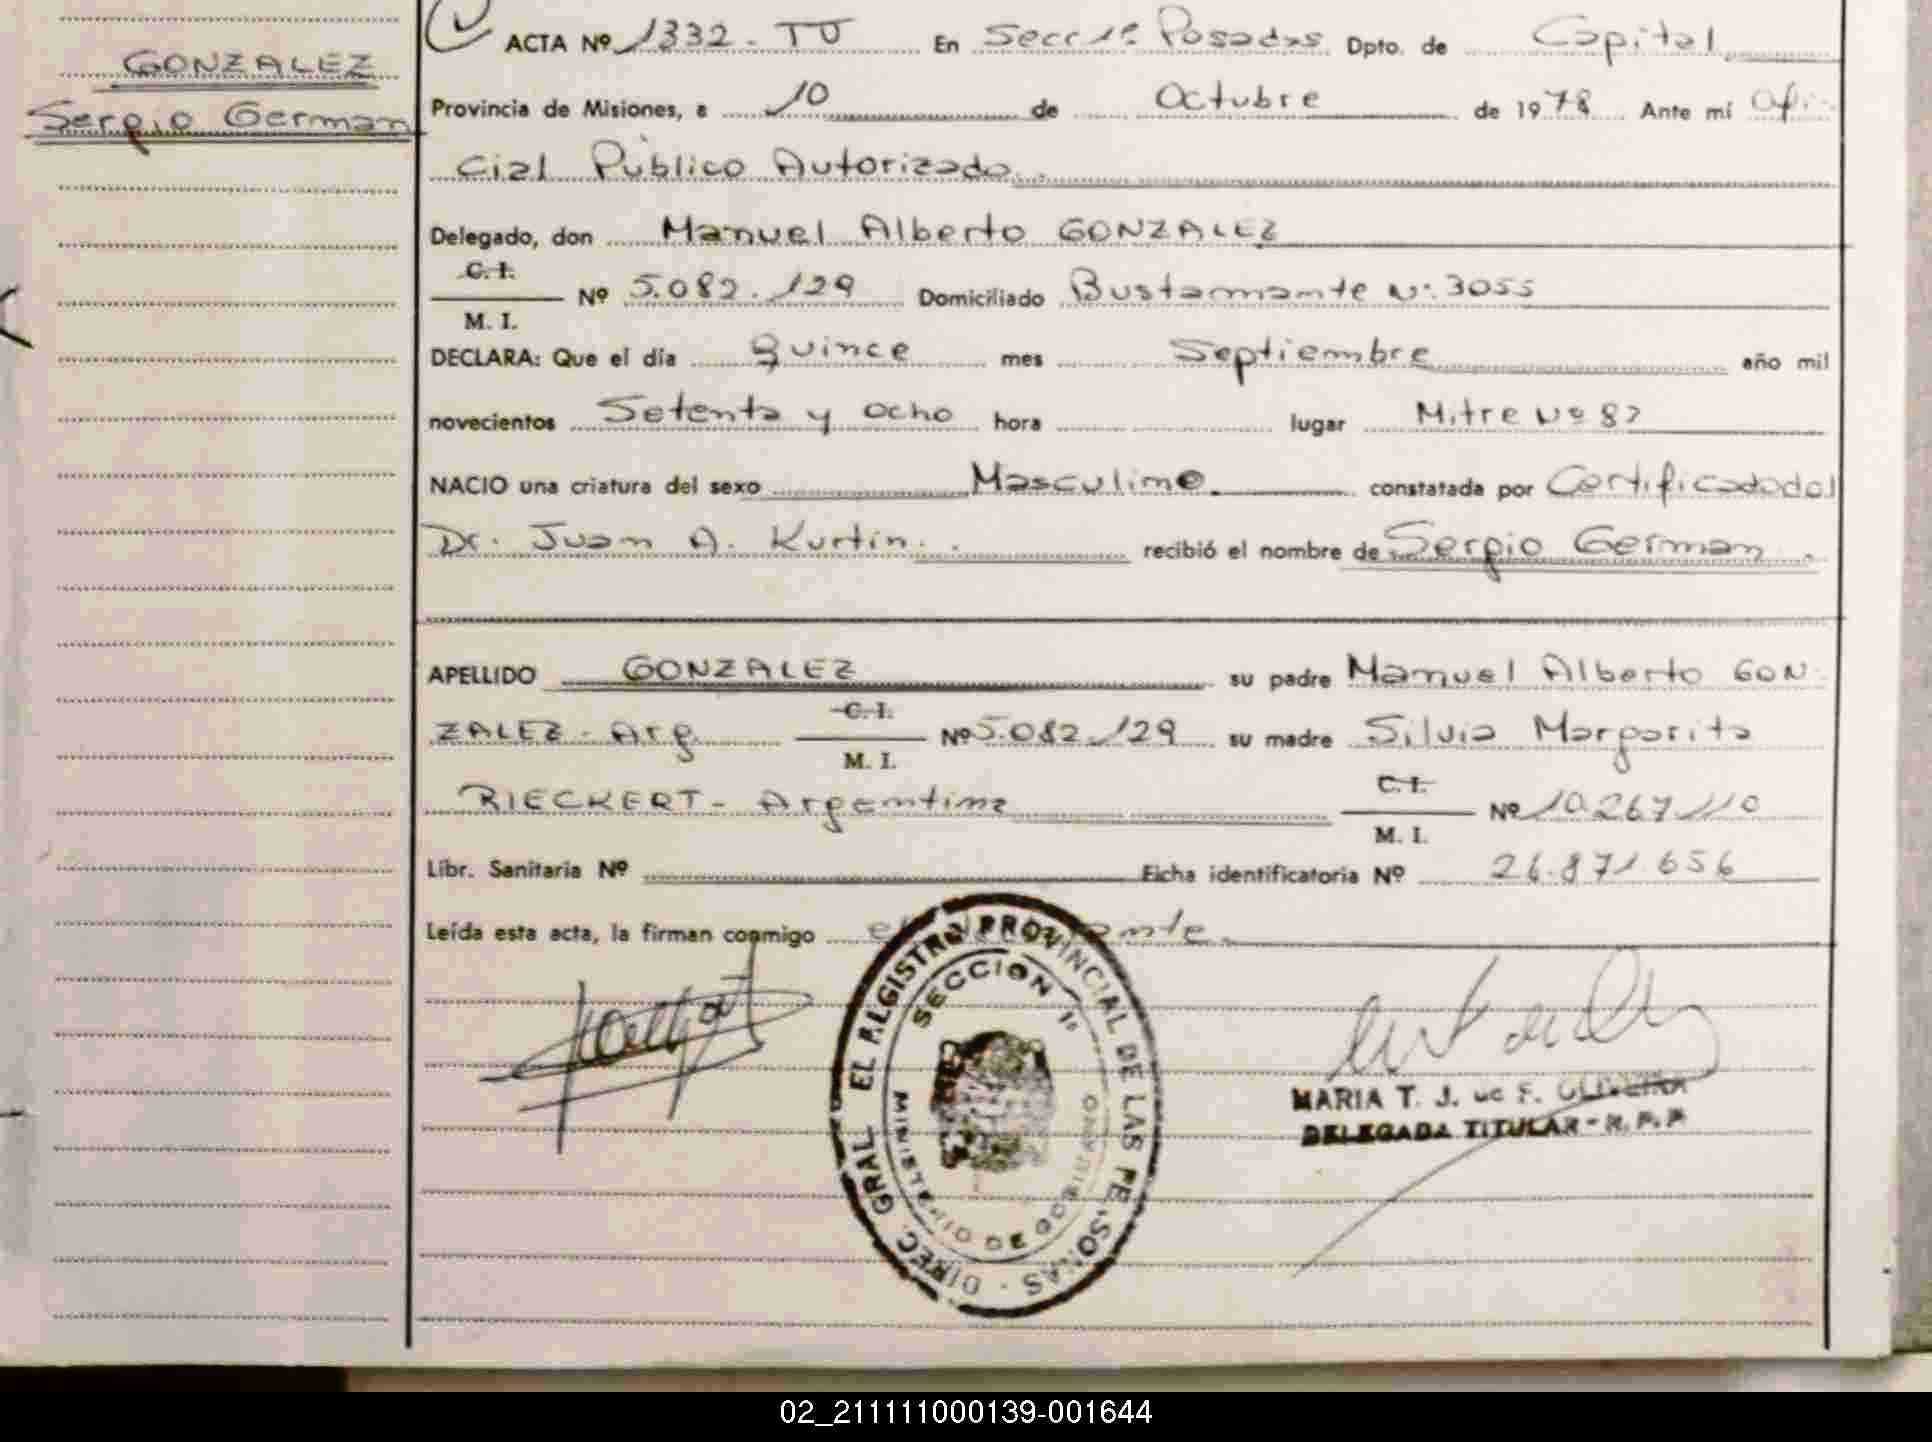 GONZALEZ
Sergio German
ACTA Nº 1332 - TU En Secc 1ª Posadas Dpto. de Capital
Provincia de Misiones, a 10 de Octubre de 1978 Ante mí Ofi-
cial Público Autorizado.
Delegado, don Manuel Alberto GONZALEZ
C. I.
Nº 5.082.129 Domiciliado Bustamante Nº 3055
M. I.
DECLARA: Que el día quince mes Septiembre año mil
novecientos Setenta y ocho hora lugar Mitre Nº 87
NACIO una criatura del sexo Masculino constatada por Certificado del
Dr. Juan A. Kurtin. recibió el nombre de Sergio German.
APELLIDO GONZALEZ su padre Manuel Alberto GON-
C. I.
ZALEZ - Arg Nº 5.082.129 su madre Silvia Margarita
M. I.
C. I.
RIECKERT - Argentina Nº 10.267.110
M. I.
Libr. Sanitaria Nº Ficha identificatoria Nº 26.871.656
Leída esta acta, la firman conmigo
DIREC. GRAL. REGISTRO PROVINCIAL DE LAS PERSONAS
SECCION 1º
MARIA T. J. de F. OLIVEIRA
DELEGADA TITULAR - R. P. P
02_211111000139-001644